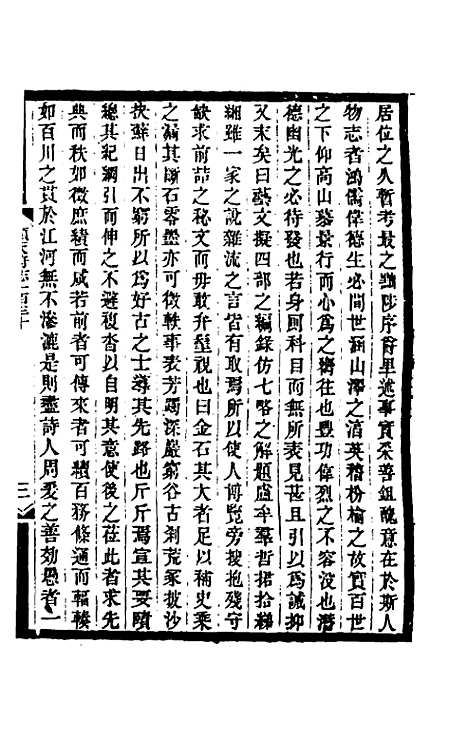 居位之人暫考最之黜陟序爵里述事實采善俎醜意在於斯人
物志者鴻儒偉德生必間世涵山澤之酒英稽枌榆之故實百世
之下仰高山慕景行而心爲之嚮往也豐功偉烈之不容没也潛
德幽光之必待發也若身厠科目而無所表見甚且引以爲誡抑
又末矣曰藝文擬四部之編錄仿七略之解題虞羊哲捃拾稗
糊雖一家之說雜流之言皆有取焉所以使人博覽旁搜抱殘守
缺求前詰之秘文而毋敢弁髦視也曰金石其大者足以補史乘
之漏其斷石零墨亦可徵軼事表芳躅深巖窮谷古刹荒冢披沙
抉蘚日出不窮所以爲好古之士導其先路也斤斤焉宣其要賾
總其紀綱引而伸之不避複沓以自明其意使後之莅此者求先
典而秩如徵庶績而咸若前者可傳來者可續百務條通而輻輳
如百川之貫於江河無不滲漉是則盡詩人周爰之善効愚者一
三